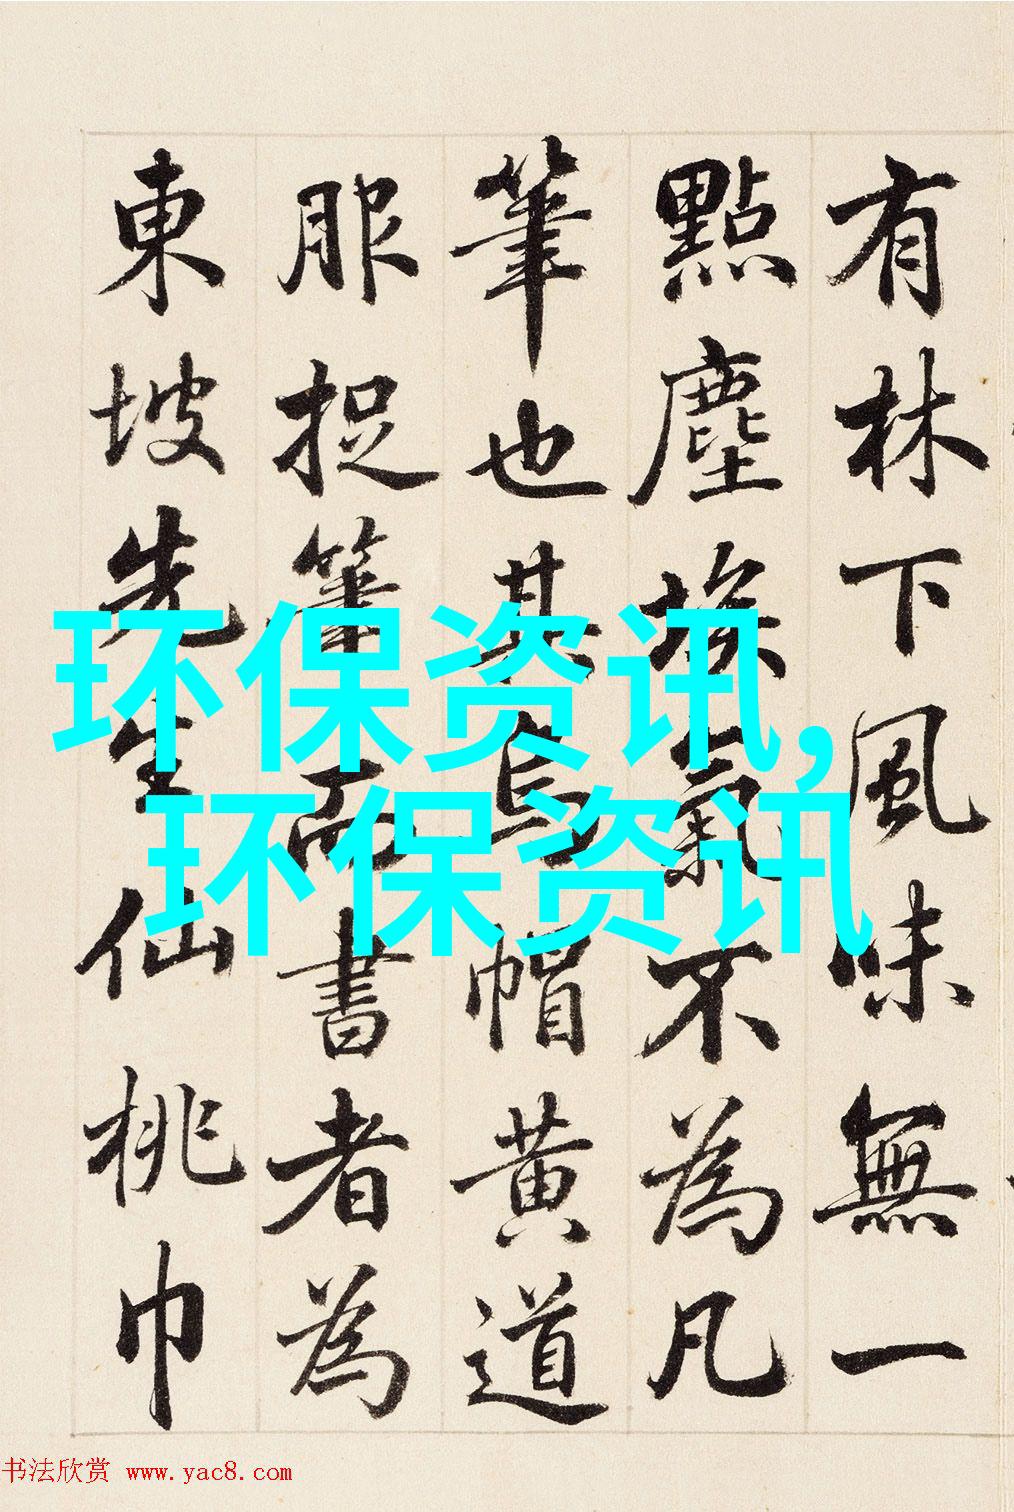 有林下風味無一
點塵埃氣不為凡
筆也其烏帽黃道
服捉筆而書者為
東坡先生仙桃巾
环保资讯,
环保资讯
书法欣赏 www.yac8.com